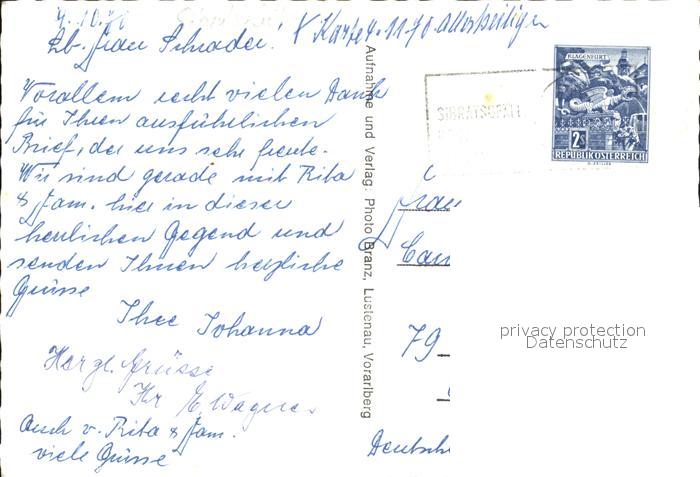 4.10.70
Lb. Frau Schrader! X Karte 4.11.70 Allerheiligen
Vorallem recht vielen Dank
für Ihren ausführlichen
Brief, der uns sehr freute.
Wir sind gerade mit Rita
& Fam. hier in dieser
herrlichen Gegend und
senden Ihnen herzliche
Grüsse
Ihre Johanna
Herzl. Grüsse
Ihr E. Wagner
Auch v. Rita & Fam.
viele Grüsse
Aufnahme und Verlag: Photo Branz, Lustenau, Vorarlberg
SIBRATSGFÄLL
KLAGENFURT
2S
REPUBLIK ÖSTERREICH
Frau
79
privacy protection
Datenschutz
Deutsch